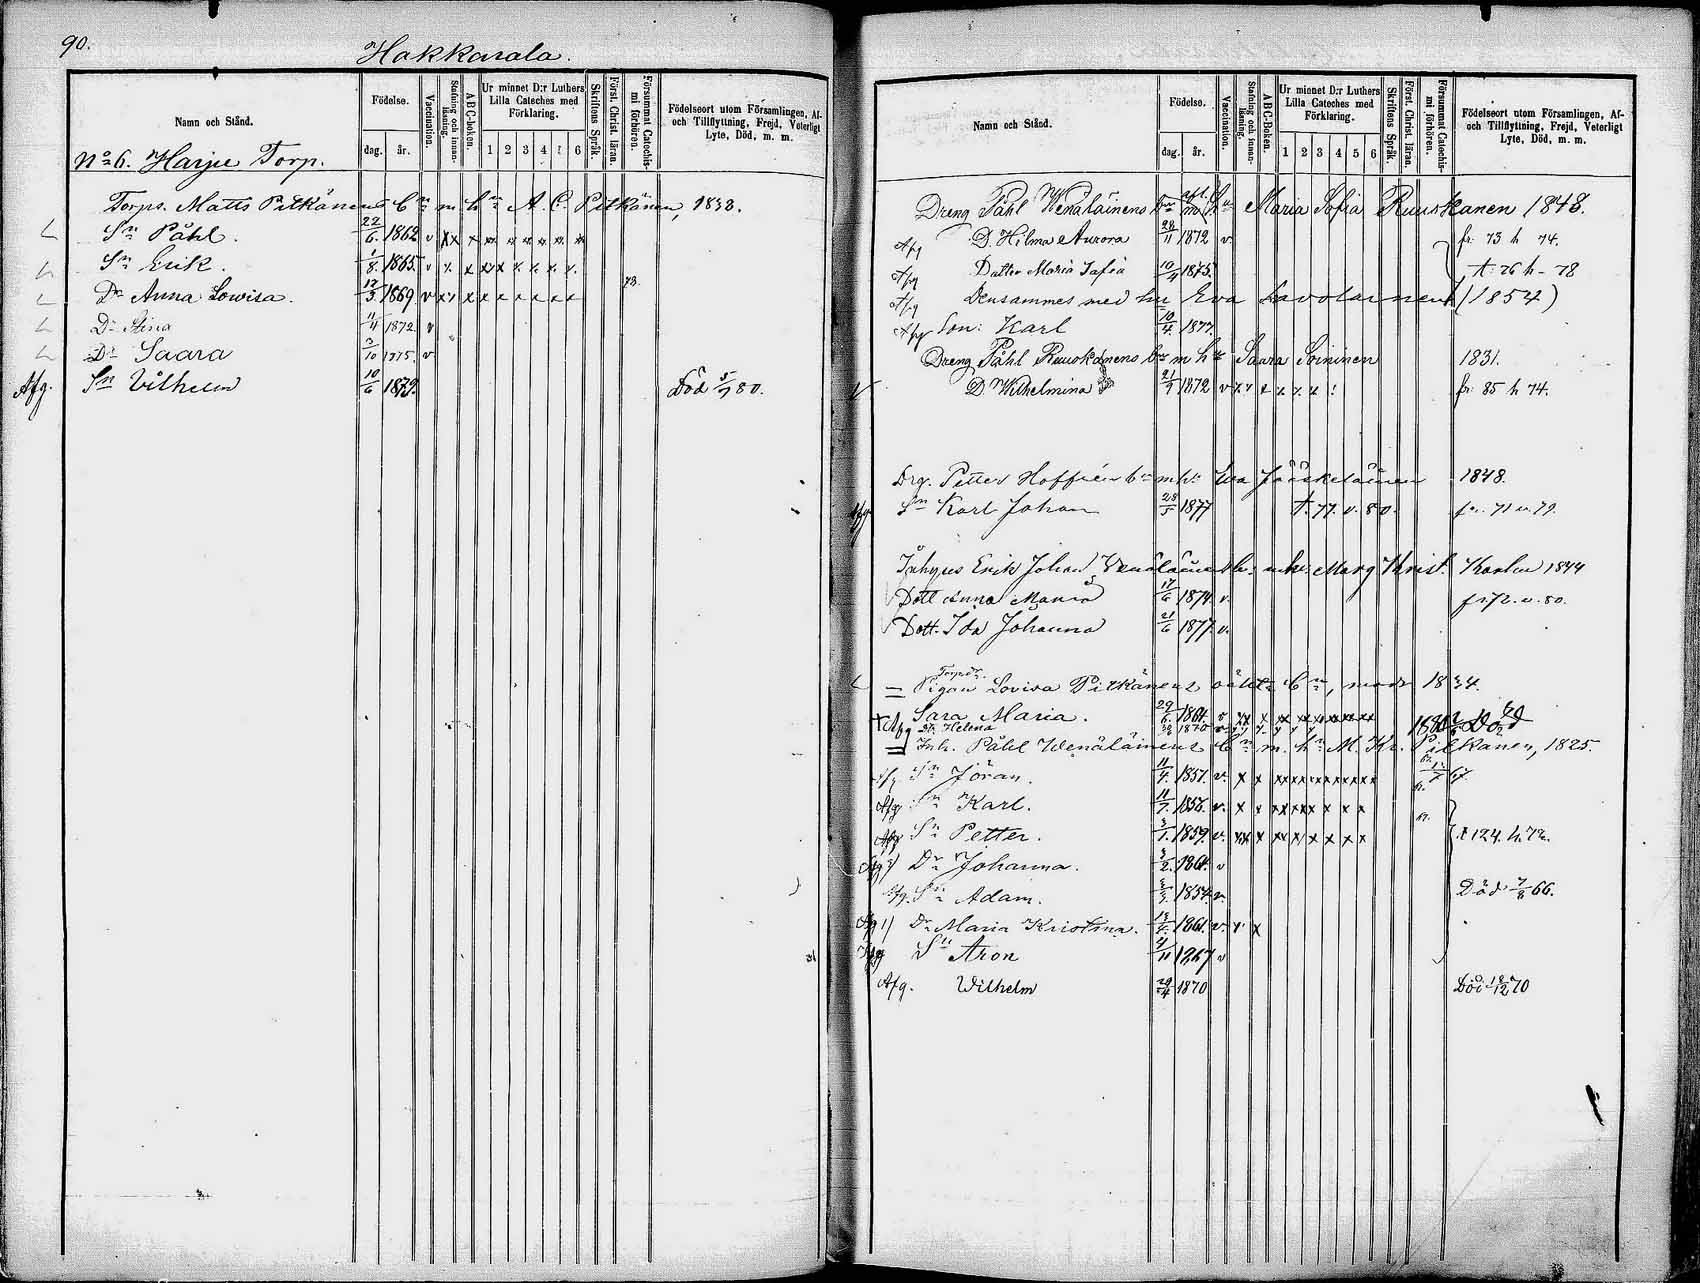 90.
Hakkarala.
Namn och Stånd.
Födelse.
dag.
år.
Vaccination.
Stafning och innanläsning.
ABC-boken.
Ur minnet D:r Luthers Lilla Cateches med Förklaring.
1 2 3 4 5 6
Skriftens Språk.
Först. Christ. läran.
Försummat Catechismi förhören.
Födelseort utom Församlingen, Af- och Tillflyttning, Frejd, Veterligt Lyte, Död, m. m.
No 6. Harju Torp.
Torp. Matts Pitkänens bn m hu A. C. Pitkänen, 1838.
Sn Påhl. 22/6 1862 v
Sn Erik. 1/8 1865 v
Dr Anna Lowisa. 17/3 1869 v 78.
Dr Stina 11/4 1872 v
Dr Saara 3/10 1875. v
Afg. Sn Vilhelm 10/6 1879. Död 5/7 80.
Namn och Stånd.
Födelse.
dag.
år.
Vaccination.
Stafning och innanläsning.
ABC-Boken.
Ur minnet D:r Luthers Lilla Cateches med Förklaring.
1 2 3 4 5 6
Skriftens Språk.
Först. Christ. läran.
Försummat Catechismi förhören.
Födelseort utom Församlingen, Af- och Tillflyttning, Frejd, Veterligt Lyte, Död, m. m.
Dreng Påhl Wenäläinens bn m hu Maria Sofia Ruuskanen 1848.
Afg D. Hilma Aurora 28/11 1872 v. fr. 73 h 74.
Afg Dotter Maria Safia 10/4 1875. t. 76 h - 78
Afg Densammes med hu Eva Savolainen (1854)
Afg Son: Karl 10/4. 1877.
Dreng Påhl Ruuskanens bn m hu Saara Soininen 1831.
D. Wilhelmina 21/9 1872 v fr 85 h 74.
Drg. Petter Hoffrén bn m hu Eva Jääskeläinen 1848.
Afg. Sn Karl Johan 28/5 1877 t. 77. v. 80. fr. 71 v. 79.
Inhyses Erik Johan Venäläinen m hu Marg Krist. 1844
Dott Anna Maria 17/6 1874. v. fr 72. v. 80.
Dott. Ida Johanna 21/6 1877. v.
Torpdr.
Pigan Lovisa Pitkänens oäkta bn, moder 1834.
Sara Maria. 29/6. 1861. v
Afg Helena 1870 v Död
Inh. Påhl Wenäläinens bn m. hu M. Kr. Pitkänen, 1825.
Afg Sn Jöran. 11/4. 1851. v.
Afg Sn Karl. 11/7. 1856. v.
Afg Sn Petter. 3/1. 1859. v. t 124. h. 72.
Afg 2) Dr Johanna. 3/2. 1864. v
Afg. Sn Adam. 1854. v. Död 7/8 66.
Afg 1) Dr Maria Kristina. 1861. v.
Afg Sn Aron 4/11 1867 v
Afg. Wilhelm 29/4 1870 Död 18/12 70